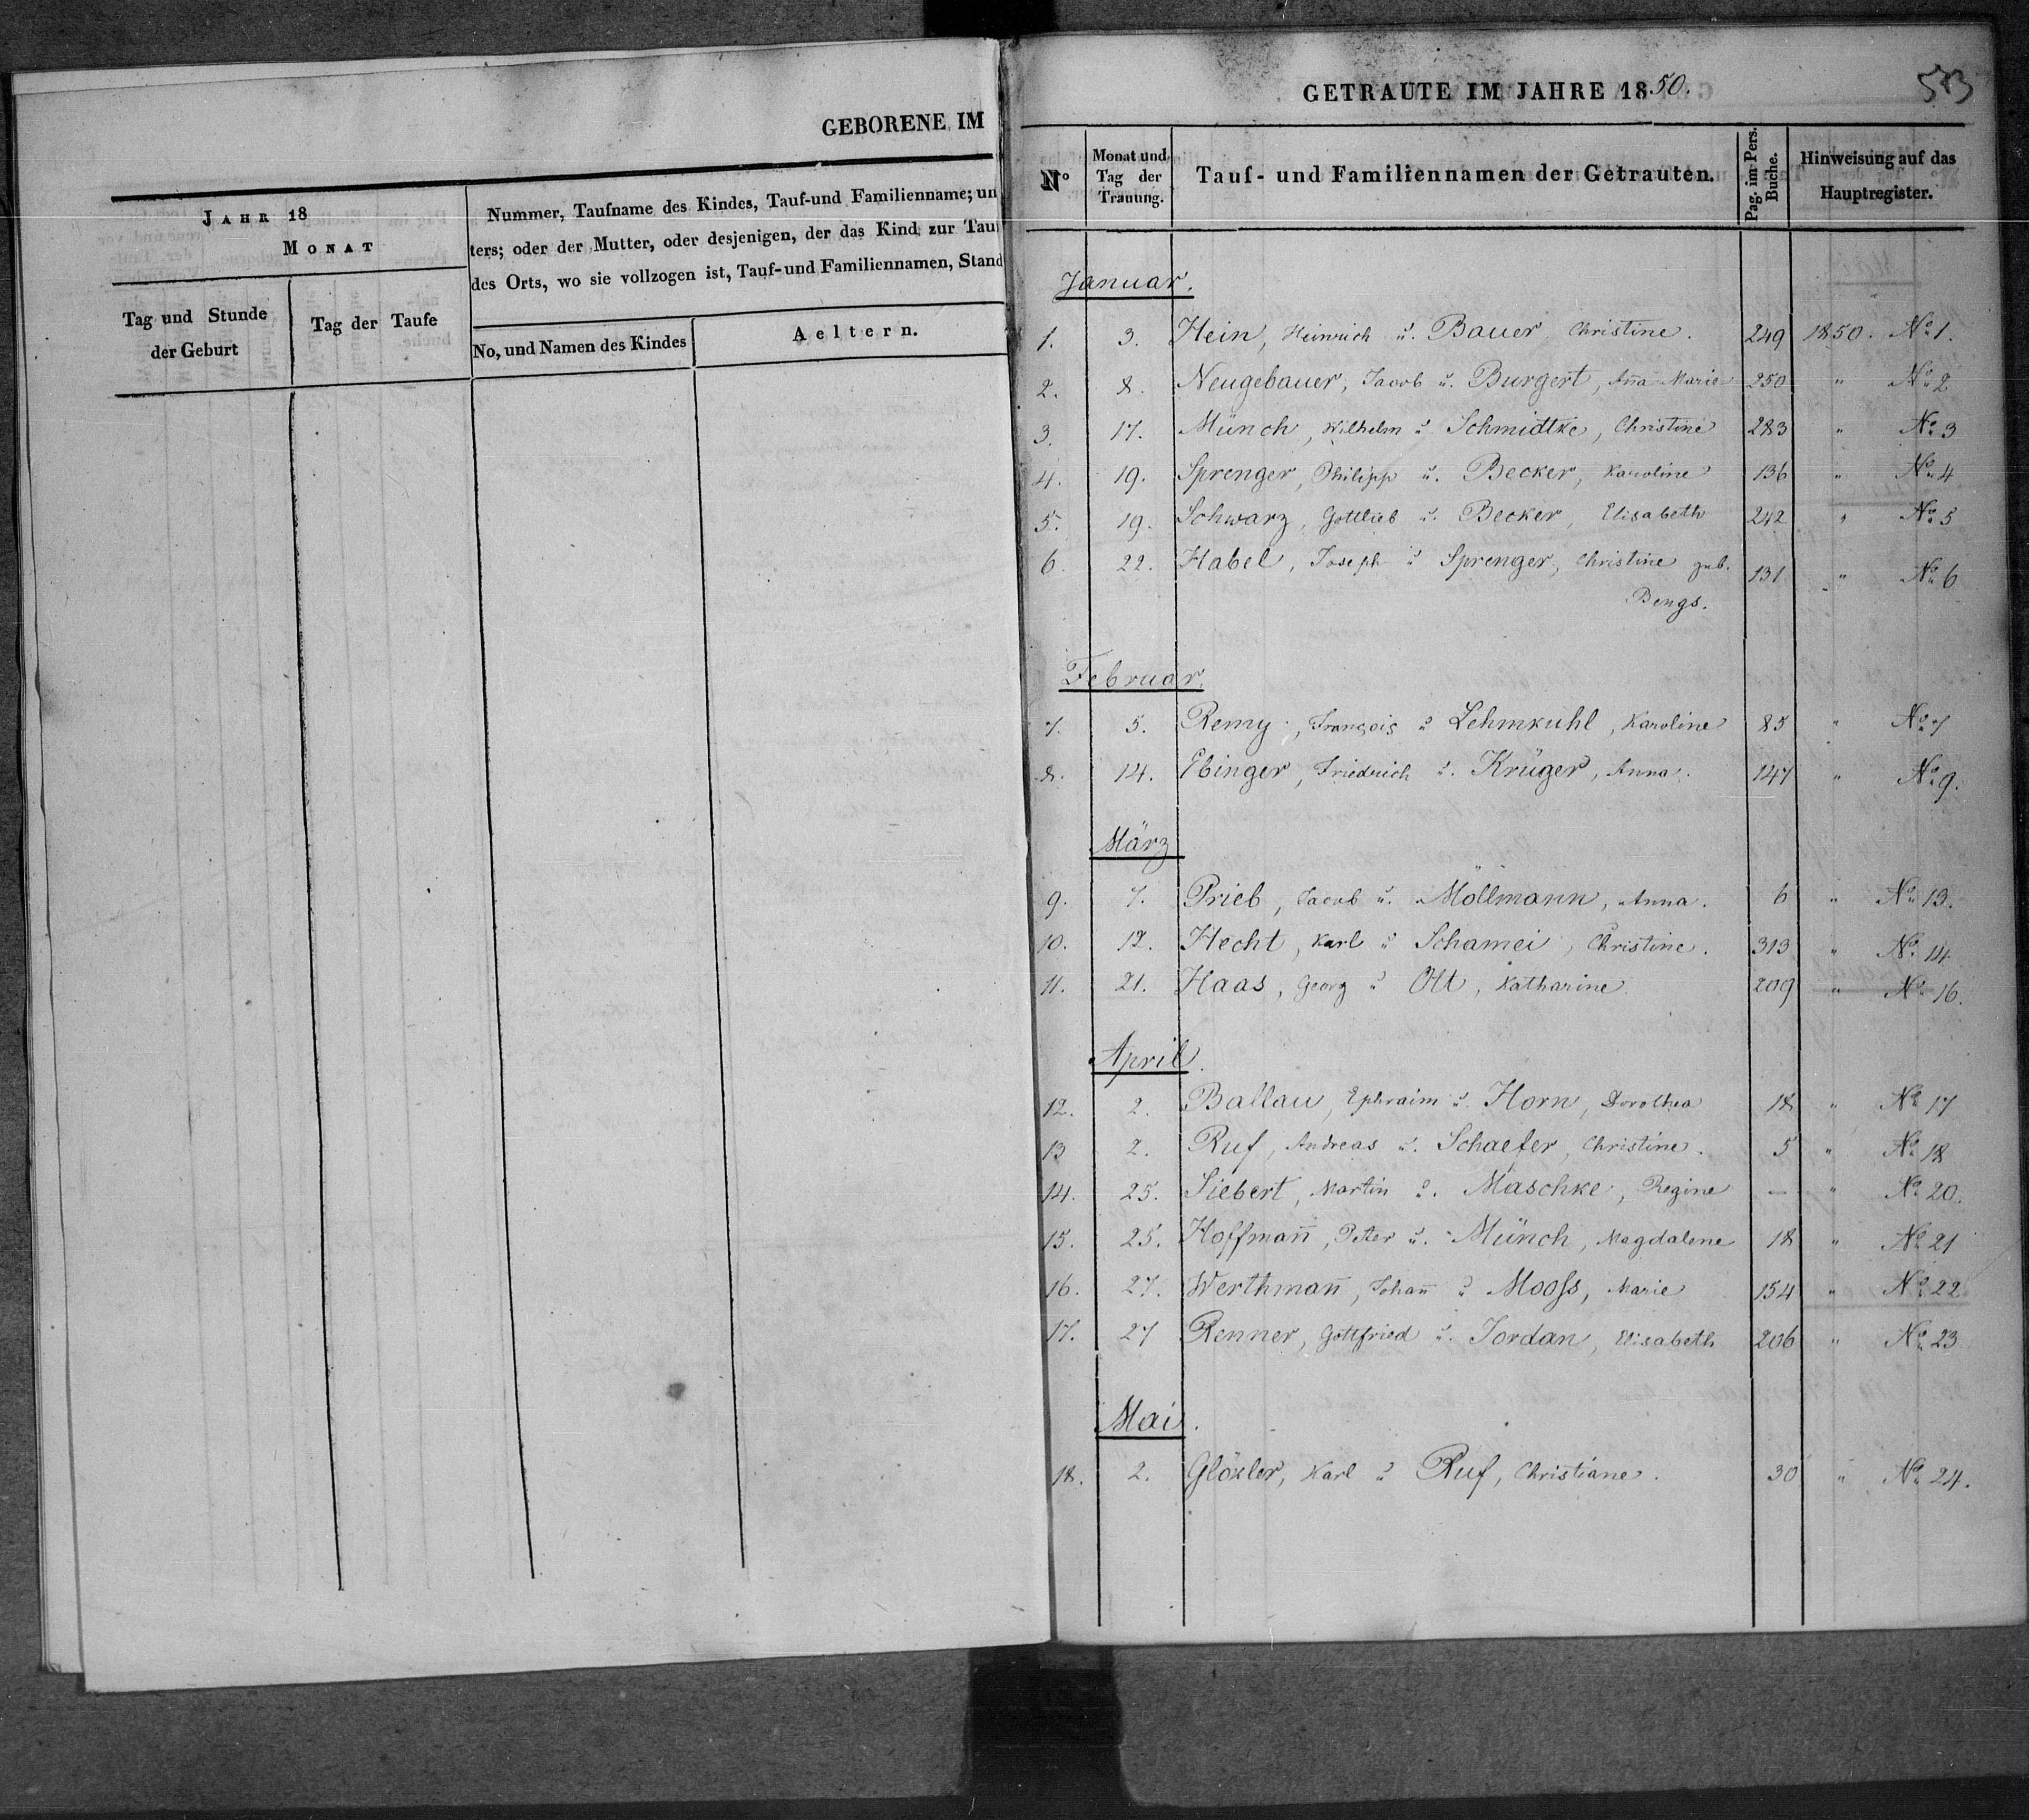 GEBORENE IM
JAHR 18
MONAT
Tag und Stunde
der Geburt
Tag der Taufe
Nummer, Taufname des Kindes, Tauf-und Familienname; un
ters; oder der Mutter, oder desjenigen, der das Kind zur Tau
des Orts, wo sie vollzogen ist, Tauf-und Familiennamen, Stand
No, und Namen des Kindes
Aeltern.
GETRAUTE IM JAHRE 1850.
Nº
Monat und
Tag der
Trauung.
Tauf- und Familiennamen der Getrauten.
Pag. im Pers.
Buche.
Hinweisung auf das
Hauptregister.
Januar.
1. 3. Hein, Heinrich u. Bauer Christine. 249 1850. Nº 1.
2. 8. Neugebauer, Jacob u. Burgert, Aña Marie 250 " Nº 2
3. 17. Münch, Wilhelm u. Schmidtke, Christine 283 " Nº 3
4. 19. Sprenger, Philipp u. Becker, Karoline 136 " Nº 4
5. 19. Schwarz, Gottlieb u. Becker, Elisabeth 242 " Nº 5
6. 22. Habel, Joseph u Sprenger, Christine geb. 131 " Nº 6
Bengs.
Februar.
7. 5. Remy, François u Lehmkuhl, Karoline 85 " Nº 7
8. 14. Ebinger, Friedrich u. Krüger, Anna. 147 " Nº 9.
März
9. 7. Prieb, Jacob u. Möllmann, Anna. 6 " Nº 13.
10. 12. Hecht, Karl u Schamei, Christine. 313 " Nº 14
11. 21. Haas, Georg u Ott, Katharine 209 " Nº 16.
April.
12. 2. Ballau, Ephraim u. Horn, Dorothea 18 " Nº 17
13 2. Ruf, Andreas u. Schaefer, Christine. 5 " Nº 18
14. 25. Siebert, Martin u. Maschke, Regine — " Nº 20.
15. 25. Hoffmañ, Peter u. Münch, Magdalene 18 " Nº 21
16. 27. Werthmañ, Johañ u Mooſs, Marie 154 " Nº 22
17. 27 Renner, Gottfried u. Jordan, Elisabeth 206 " Nº 23
Mai.
18. 2. Glökler, Karl u Ruf, Christiane. 30 " Nº 24.